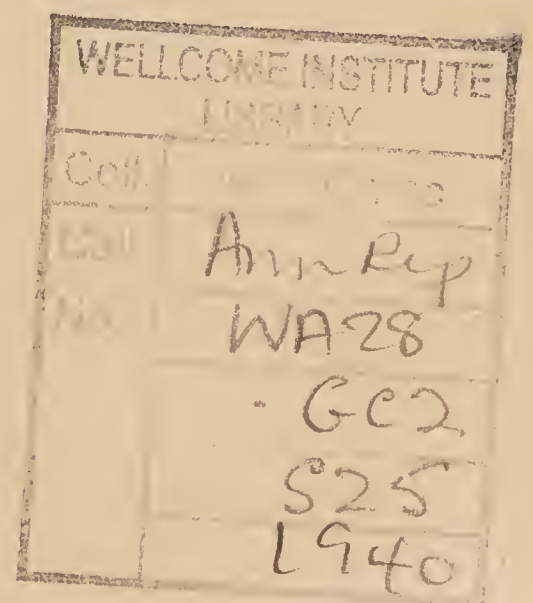 WELLCOME INSTITUTE
LIBRARY
Coll.
Ann Rep
Call
WA28
No.
· GC2
S25
1940